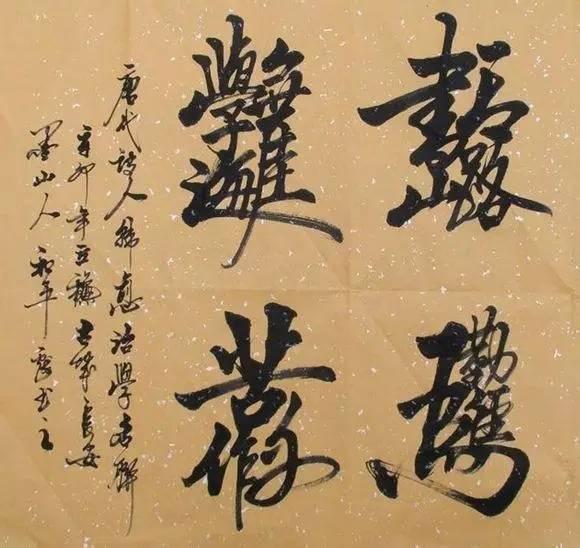 書山有路
勤為徑
學海無涯
苦作舟
唐代詩人韓愈治學名聯
辛卯年 古城長安
墨山人和平 之